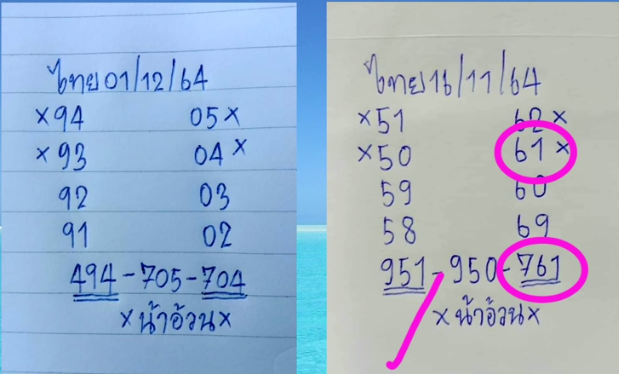 ไทย 01/12/64
×94 05×
×93 04×
92 03
91 02
494-705-704
×น้าอ้วน×
ไทย 16/11/64
×51 62×
×50 61×
59 60
58 69
951-950-761
×น้าอ้วน×